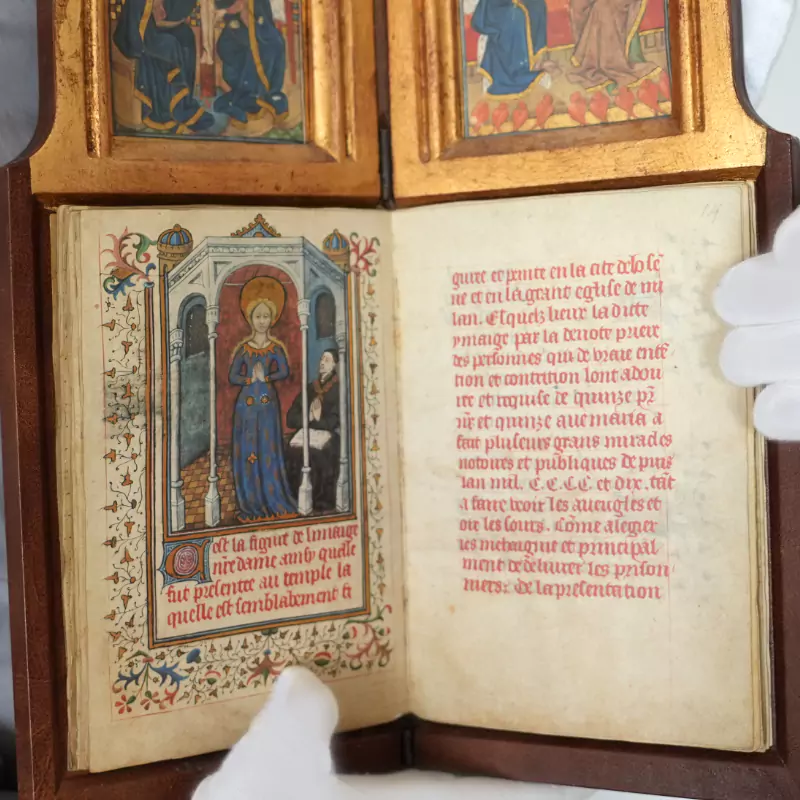 Cest la figure de limaige
nre dame ainsy quelle
fut presentee au temple la
quelle est semblablement fi
guree et peinte en la cite de lo se
ne et en la grant eglise de mi
lan. Esquelz lieux la dicte
ymaige par la devote priere
des personnes qui de vraie enten
tion et contrition lont adou
ree et requise de quinze
et quinze ave maria a
fait plusieurs grans miracles
notoires et publiques depuis
lan mil. C.C.C.C et dix. tat
a faire veoir les aueugles et
oir les sours. Come alegier
les mehaignie et principal
ment de deliurer les prison
niers: De la presentation